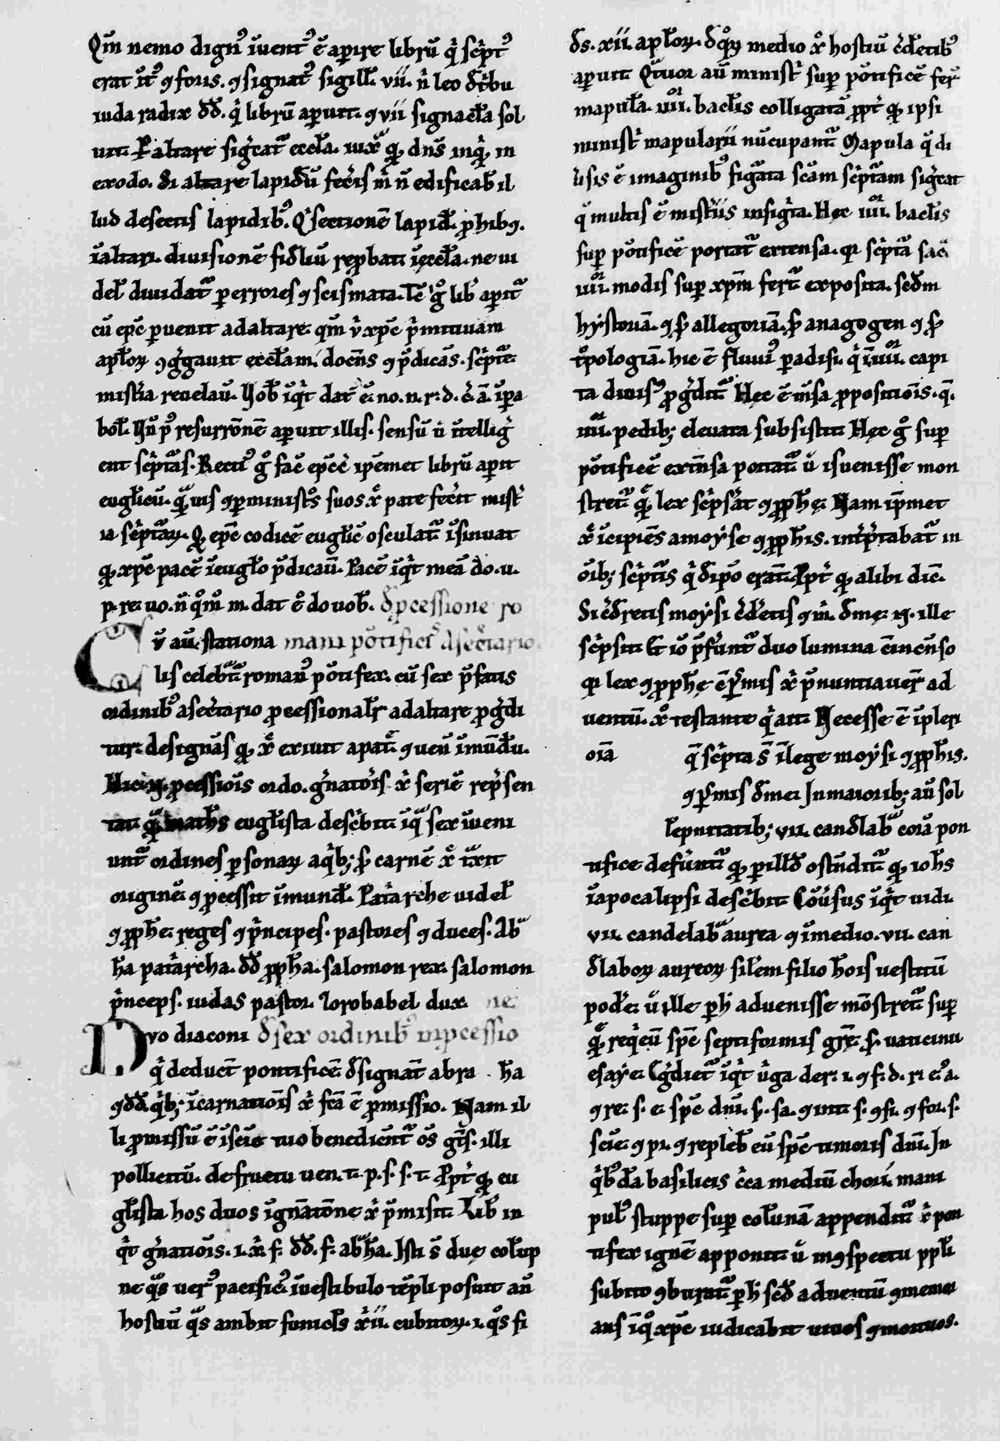 Qm̄ nemo dignꝰ iuentꝰ ē aperire librū q̇ sc̄ptꝰ
erat itꝰ ⁊ foris. ⁊ signatꝰ sigill. vii. n̄ leo
iuda radix dd̄. q̇ librū aperuit. ⁊ vii signacła sol
uit. Altare figᷓcat eccła. iux̄ q̨ dn̄s inq̇ in
exodo. Si altare lapidū fec̄is m̄ n̄ edificab̄ il
lud desectis lapidibꝰ. Q̇ sectionē lapid̄. ꝓhibꝫ
ī altari. divisionē fidliū reꝓbat ī eccła. ne ui
del̄ diuidat̄ ꝑ errores ⁊ scismata. Tc̄ ḡ lib̄ aperit̄
cū epc̄ puenit ad altare. qm̄ xp̄c p̄mitivam
apłoꝝ ⁊gᷓgauit eccłam. docēns ⁊ p̄dicās. sc̄pt̄e
mist̄ia reuelau. Uob̄ īq̇t dat̄ ē. no. n. r. d. c̄. ā. ī pa
bol̄. Un̄ p̄ resurrōnē aperuit illis. sensū ū ītelliḡ
ent sc̄ptās. Recti ḡ fac̄ epc̄ ip̄emet librū aperit
eugliꝰ. q̄uis ꝑ ministꝰs suos x̄ pate fec̄it mist̄
ia sc̄ptaꝝ. Q̨ epc̄ codicē euglīc osculat̄ īsinuat
q̨ xp̄c pacē ī euglō p̄dicau. Pacē īq̇t meā do. u.
p. re. uo. n̄ q̊m̊ m. dat ē do uob̄. ꝓcessione ro
v̄ au. stationa mani pōtifics̄ a sec̄tario
lis celeb̄t̄ romanꝰ pōtifex. cū sex p̄fatis
ordinibꝰ a sec̄tario ꝓcessionalr̄ ad altare ꝓḡdi
tur. designās q̨ x̄ exiuit a pat̄ ⁊ uenīt ī mūdū.
Hui ꝓcessiōis ordo. gn̄atōis x̄ seriē rep̄sen
tat quā math̄s euglista desc̄bit. ī q̄ sex īueni
unt̄ ordines ꝑsonaꝝ a q̇bꝫ. s̄ carnē x̄ t̄xit
originē. ⁊ ꝓcessit ī mund̄. Pat̄arche uidel̄
⁊ ꝓphe. reges ⁊ p̄ncipes. pastores ⁊ duces. Ab̄
hā pat̄archa. dd̄ ꝓpha. salomon rex. salomon
p̄nceps. iudas pastor. Zorobabel dux ne
Dvo diaconi de sex ordinibꝰ in pcessio
q̇ deducēt pontificē. dsignāt abra hā
⁊ dd̄. q̇bꝫ īcarnatiōis x̄ fc̄a ē ꝓmissio. Nam il
li ꝓmissū ē. ī seīe tuo benedicent̄ ōs gt̄s. illi
pollicitū. de fructu uen. t. p. s. s. t. ꝓpt̄ q̨ eu
glista hos duos ī gn̄atōne x̄ p̄misit. Lib̄ in
q̇t gn̄atiōis. i. x̄. f. dd̄. f. ab̄hā. Isti s̄ due colūp
ne q̄s uerꝰ pacificꝰ ī uestibulo tēpli posuit an̄
hostiū q̄s ambit funicls̄ xii. cubitoꝝ. i. q̄s fi
ds. xii. apłoꝝ. medio x̄ hostiū
aperuit. Q̇tuor au minist̄ suꝑ pōtificē fer̄
mapuła. iiii. bacłis colligatā. ꝓpt̄ q̨ ipsi
minist̄ mapularii nūcupant̄. Mapula q̄ di
ūsis ē imaginibꝰ figᷓata sc̄am sc̄ptam sigᷓcat
q̄ multis ē mist̄iis insigᷓta. Hec iiii. bacłis
suꝑ pōtificē portat̄ extensa. q̨ sc̄ptā sac̄
iiii. modis suꝑ xp̄m fert̄ exposita. sc̄dm
hystoriā. ⁊ s̄ allegoriā. s̄ anagogen ⁊ s̄
tꝓologiā. hic ē fluuiꝰ padisi. q̇ ī iiii. capi
ta diuisꝰ ꝓgᷓdit̄. Hec ē m̄sa ꝓpositiōis. q̄.
iiii. pedibꝫ eleuata subsistit. Hec ḡ suꝑ
pōtificē extēnsa portat̄ ū isuenisse mon
stret̄ quē lex sc̄psat ⁊ ꝓphe. Nam ip̄met
x̄ īcipiēs a moyse ⁊ ꝓphis. int̄p̄tabat̄ in
ōibꝫ sc̄ptis q̄ d ipo erant. ꝓpt̄ q̨ alibi dic̄.
Si c̄dretis moysi c̄detis ⁊ m̄. d me. n. ille
sc̄psit. Et iō p̄funt̄ duo lumina cū incēnso
q̨ lex ⁊ ꝓphe p̄nuntiauer̄ ad
uentū. x̄ testante q̇ ait. Necesse ē īpleri
oīa q̄ sc̄pta s̄ ī lege moysi ⁊ ꝓphis.
⁊ d me. In maioribꝫ au sol
lēpnitatibꝫ. vii. candlab̄ corā pon
tifice defunt̄ q̨ ꝑ illd̄ ostēndit̄ q̨ ioh̄s
ī apocalipsi desc̄bit. Cōūsus īq̇t uidi
vii. candelab̄ aurea ⁊ ī medio. vii. can
dlaboꝝ aureoꝝ silem filio hōis uestitū
pode̅. ū ille ꝑ h̄ aduenisse mōstret̄ suꝑ
quē reqeū spc̄ septiformis gr̄e. s̄. uaticinū
esaye. Egᷓdiet̄ īq̇t ūga de r. i. ⁊ f. d. r. e. a.
⁊ re. s. e. spc̄ dnī. s. sa. ⁊ inti. s. ⁊ si. ⁊ for. s.
scie. ⁊ pi. ⁊ repleb̄ eū spc̄ timoris dnī. In
q̇bda basilicis c̄ca mediū chori. mani
pulꝰ stuppe suꝑ colūnā appendit̄ x̄ pon
tifex ignē apponit. ū ī ⁊spectu ppłi
subito ⁊burat̄. ꝑ h̄ scd̄ aduentū ⁊memor
ans ī q̊ xp̄c iudicabit uiuos ⁊ mortuos.